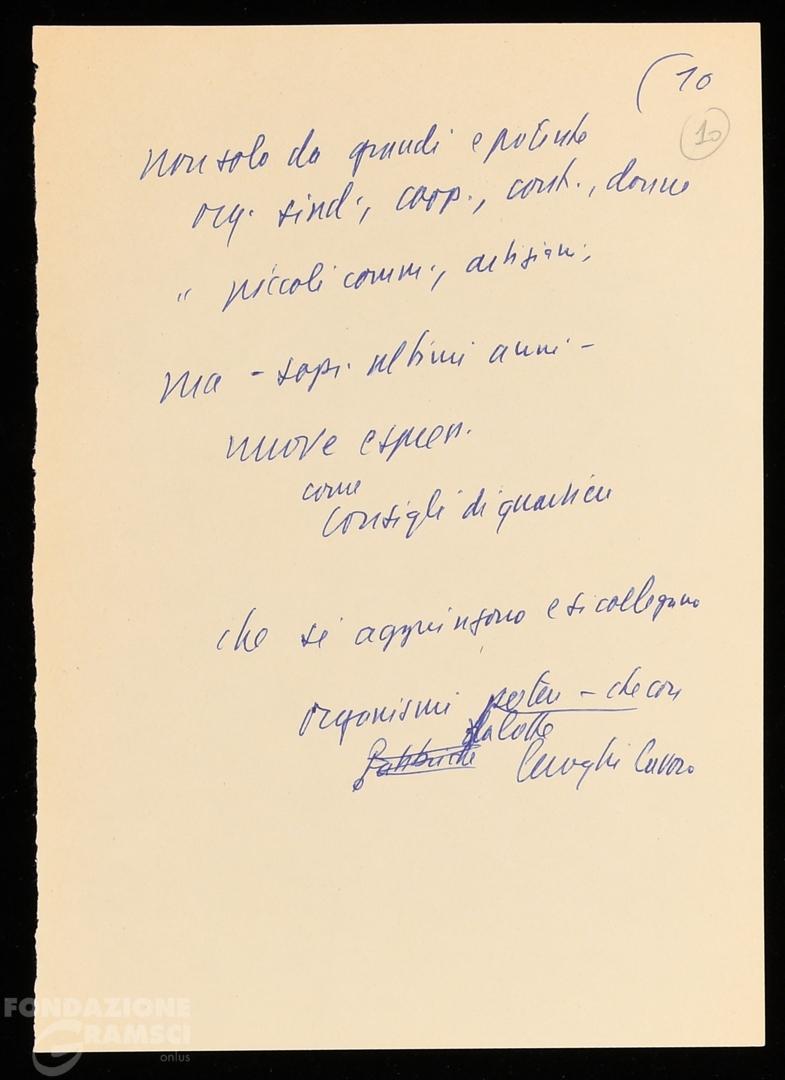 (10
10
non solo da grandi e potente
org. sind., coop., cont., donne
" piccoli comm., artigiani,
ma - sop. ultimi anni -
nuove espress.
come
consigli di quartiere
che si aggiungono e si collegano
organismi - che con
la lotte
luoghi lavoro
FONDAZIONE
GRAMSCI
onlus